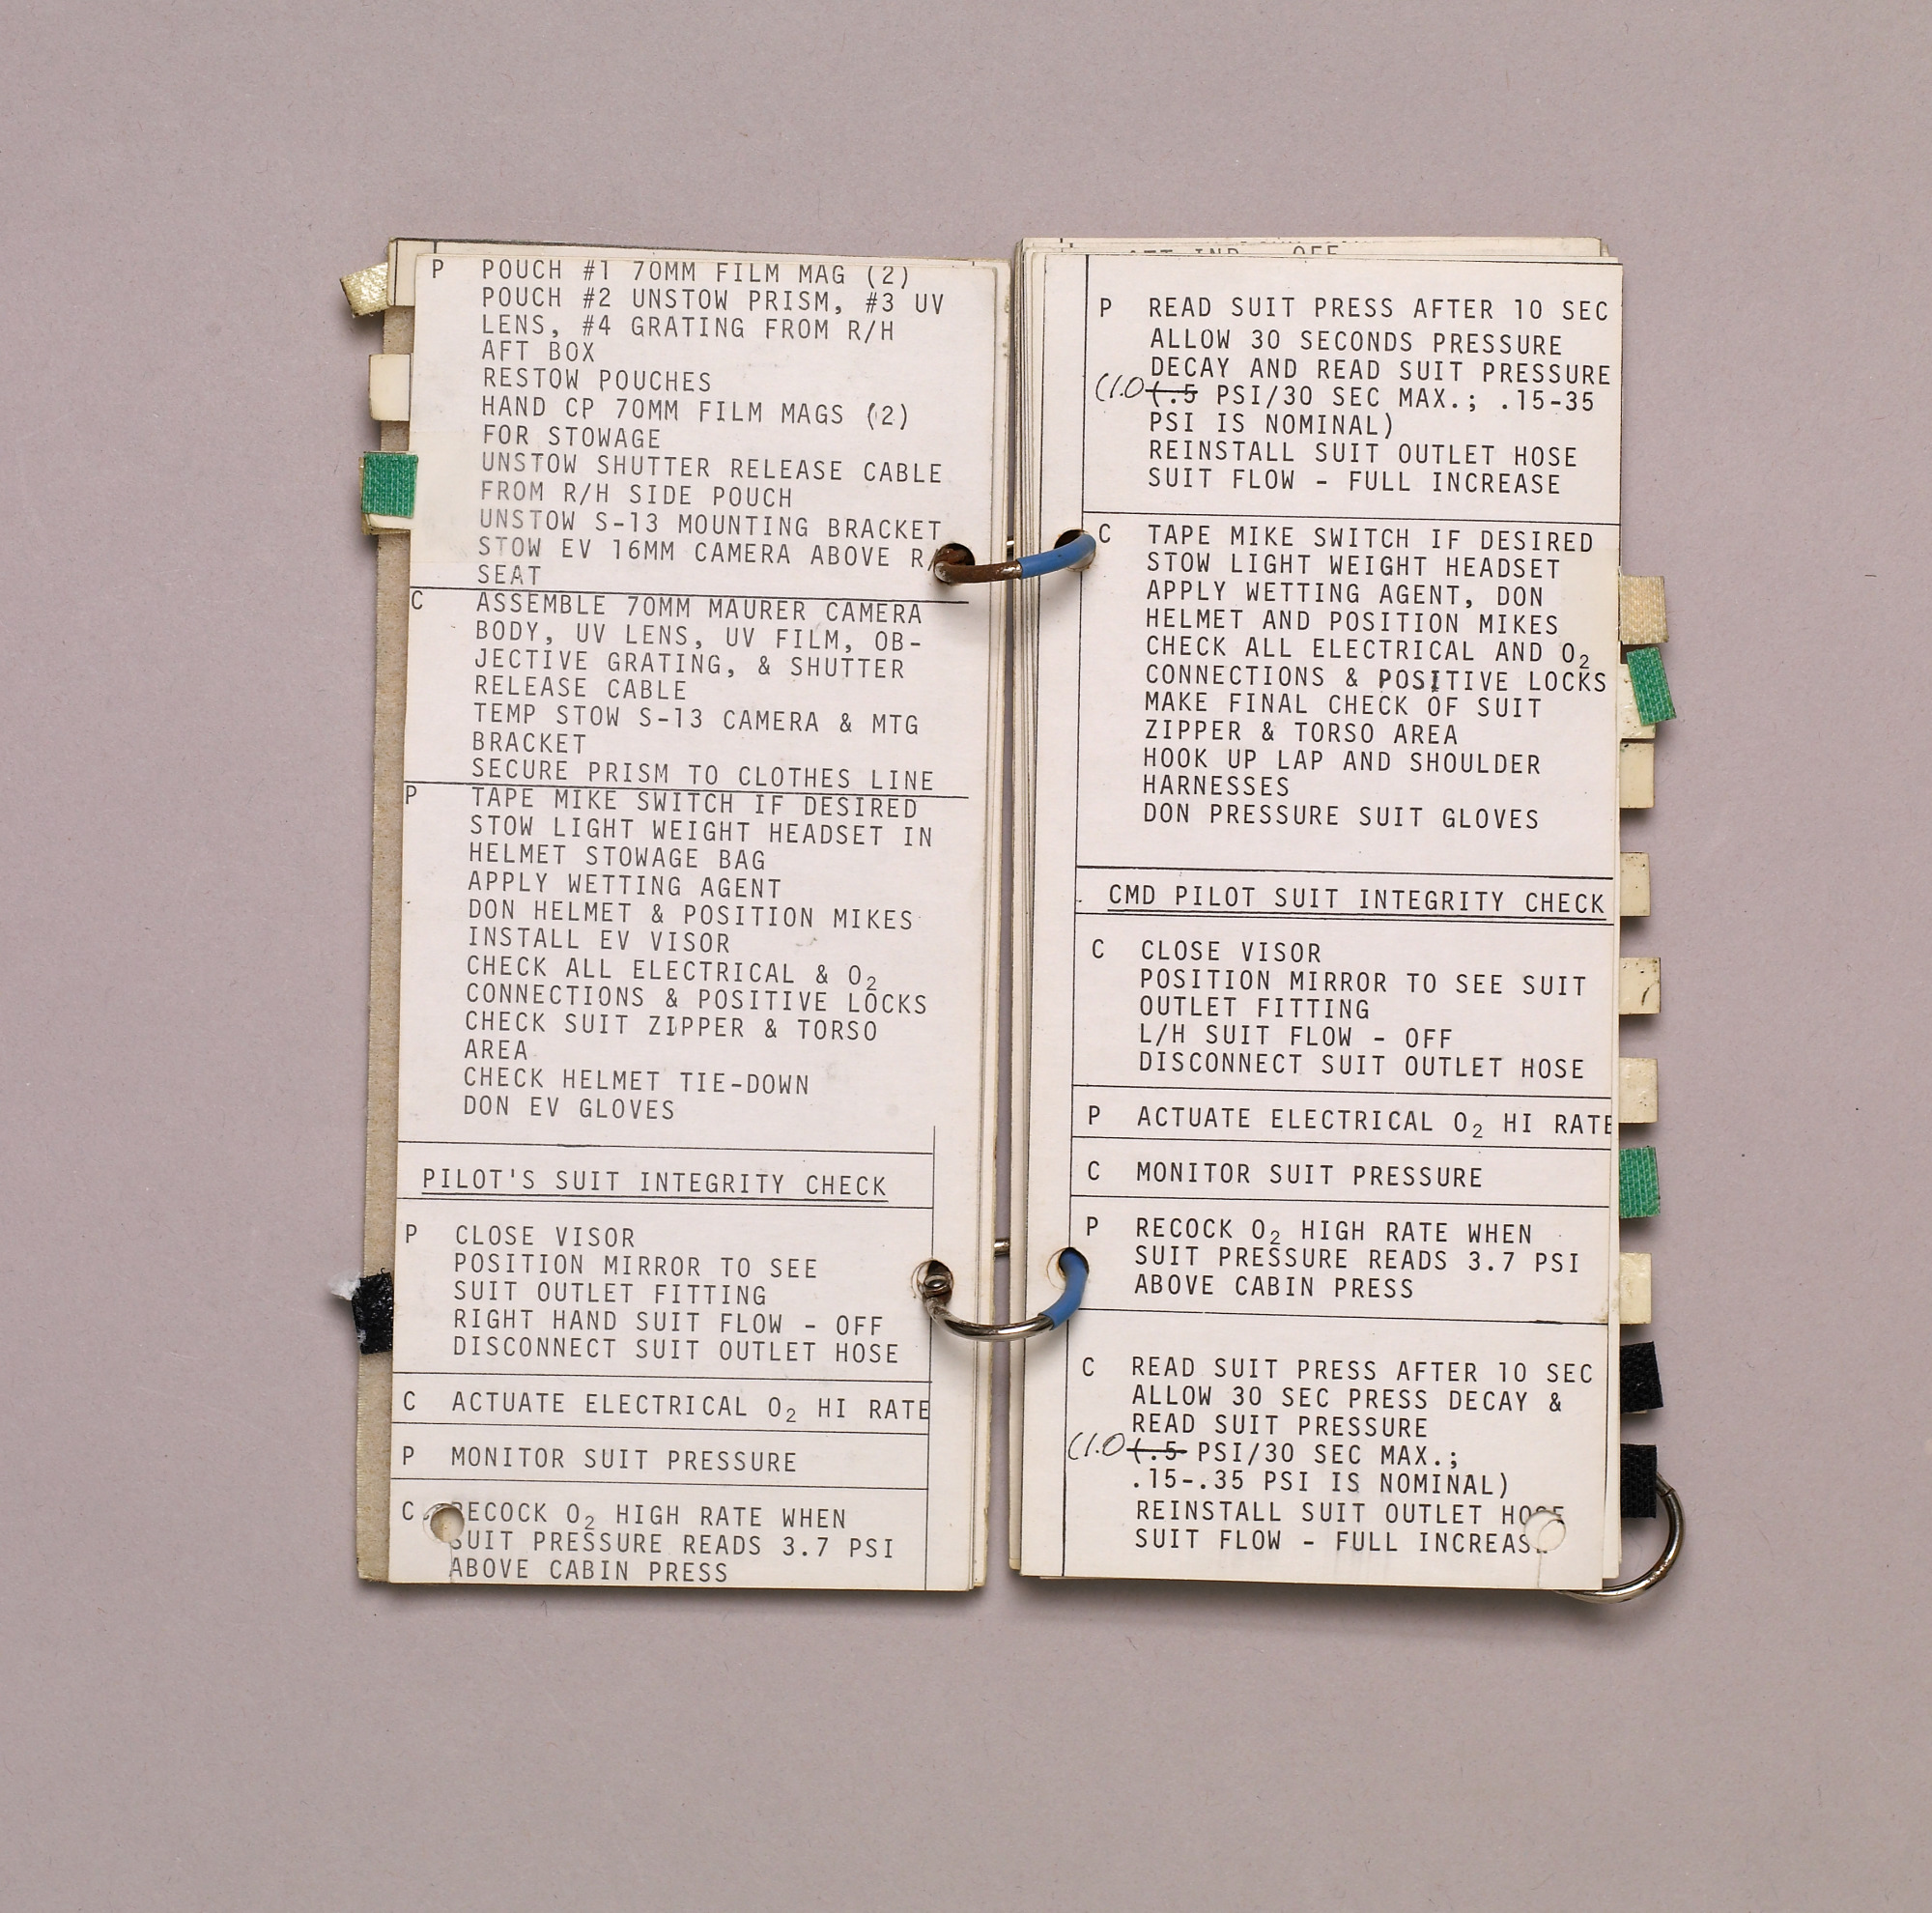 P POUCH #1 70MM FILM MAG (2)
POUCH #2 UNSTOW PRISM, #3 UV
LENS, #4 GRATING FROM R/H
AFT BOX
RESTOW POUCHES
HAND CP 70MM FILM MAGS (2)
FOR STOWAGE
UNSTOW SHUTTER RELEASE CABLE
FROM R/H SIDE POUCH
UNSTOW S-13 MOUNTING BRACKET
STOW EV 16MM CAMERA ABOVE R/
SEAT
C ASSEMBLE 70MM MAURER CAMERA
BODY, UV LENS, UV FILM, OB-
JECTIVE GRATING, & SHUTTER
RELEASE CABLE
TEMP STOW S-13 CAMERA & MTG
BRACKET
SECURE PRISM TO CLOTHES LINE
P TAPE MIKE SWITCH IF DESIRED
STOW LIGHT WEIGHT HEADSET IN
HELMET STOWAGE BAG
APPLY WETTING AGENT
DON HELMET & POSITION MIKES
INSTALL EV VISOR
CHECK ALL ELECTRICAL & O2
CONNECTIONS & POSITIVE LOCKS
CHECK SUIT ZIPPER & TORSO
AREA
CHECK HELMET TIE-DOWN
DON EV GLOVES
PILOT'S SUIT INTEGRITY CHECK
P CLOSE VISOR
POSITION MIRROR TO SEE
SUIT OUTLET FITTING
RIGHT HAND SUIT FLOW - OFF
DISCONNECT SUIT OUTLET HOSE
C ACTUATE ELECTRICAL O2 HI RATE
P MONITOR SUIT PRESSURE
C RECOCK O2 HIGH RATE WHEN
SUIT PRESSURE READS 3.7 PSI
ABOVE CABIN PRESS
OFF
P READ SUIT PRESS AFTER 10 SEC
ALLOW 30 SECONDS PRESSURE
DECAY AND READ SUIT PRESSURE
(1.0 (.5 PSI/30 SEC MAX.; .15-35
PSI IS NOMINAL)
REINSTALL SUIT OUTLET HOSE
SUIT FLOW - FULL INCREASE
C TAPE MIKE SWITCH IF DESIRED
STOW LIGHT WEIGHT HEADSET
APPLY WETTING AGENT, DON
HELMET AND POSITION MIKES
CHECK ALL ELECTRICAL AND O2
CONNECTIONS & POSITIVE LOCKS
MAKE FINAL CHECK OF SUIT
ZIPPER & TORSO AREA
HOOK UP LAP AND SHOULDER
HARNESSES
DON PRESSURE SUIT GLOVES
CMD PILOT SUIT INTEGRITY CHECK
C CLOSE VISOR
POSITION MIRROR TO SEE SUIT
OUTLET FITTING
L/H SUIT FLOW - OFF
DISCONNECT SUIT OUTLET HOSE
P ACTUATE ELECTRICAL O2 HI RATE
C MONITOR SUIT PRESSURE
P RECOCK O2 HIGH RATE WHEN
SUIT PRESSURE READS 3.7 PSI
ABOVE CABIN PRESS
C READ SUIT PRESS AFTER 10 SEC
ALLOW 30 SEC PRESS DECAY &
READ SUIT PRESSURE
(1.0 (.5 PSI/30 SEC MAX.;
.15-.35 PSI IS NOMINAL)
REINSTALL SUIT OUTLET HOSE
SUIT FLOW - FULL INCREASE